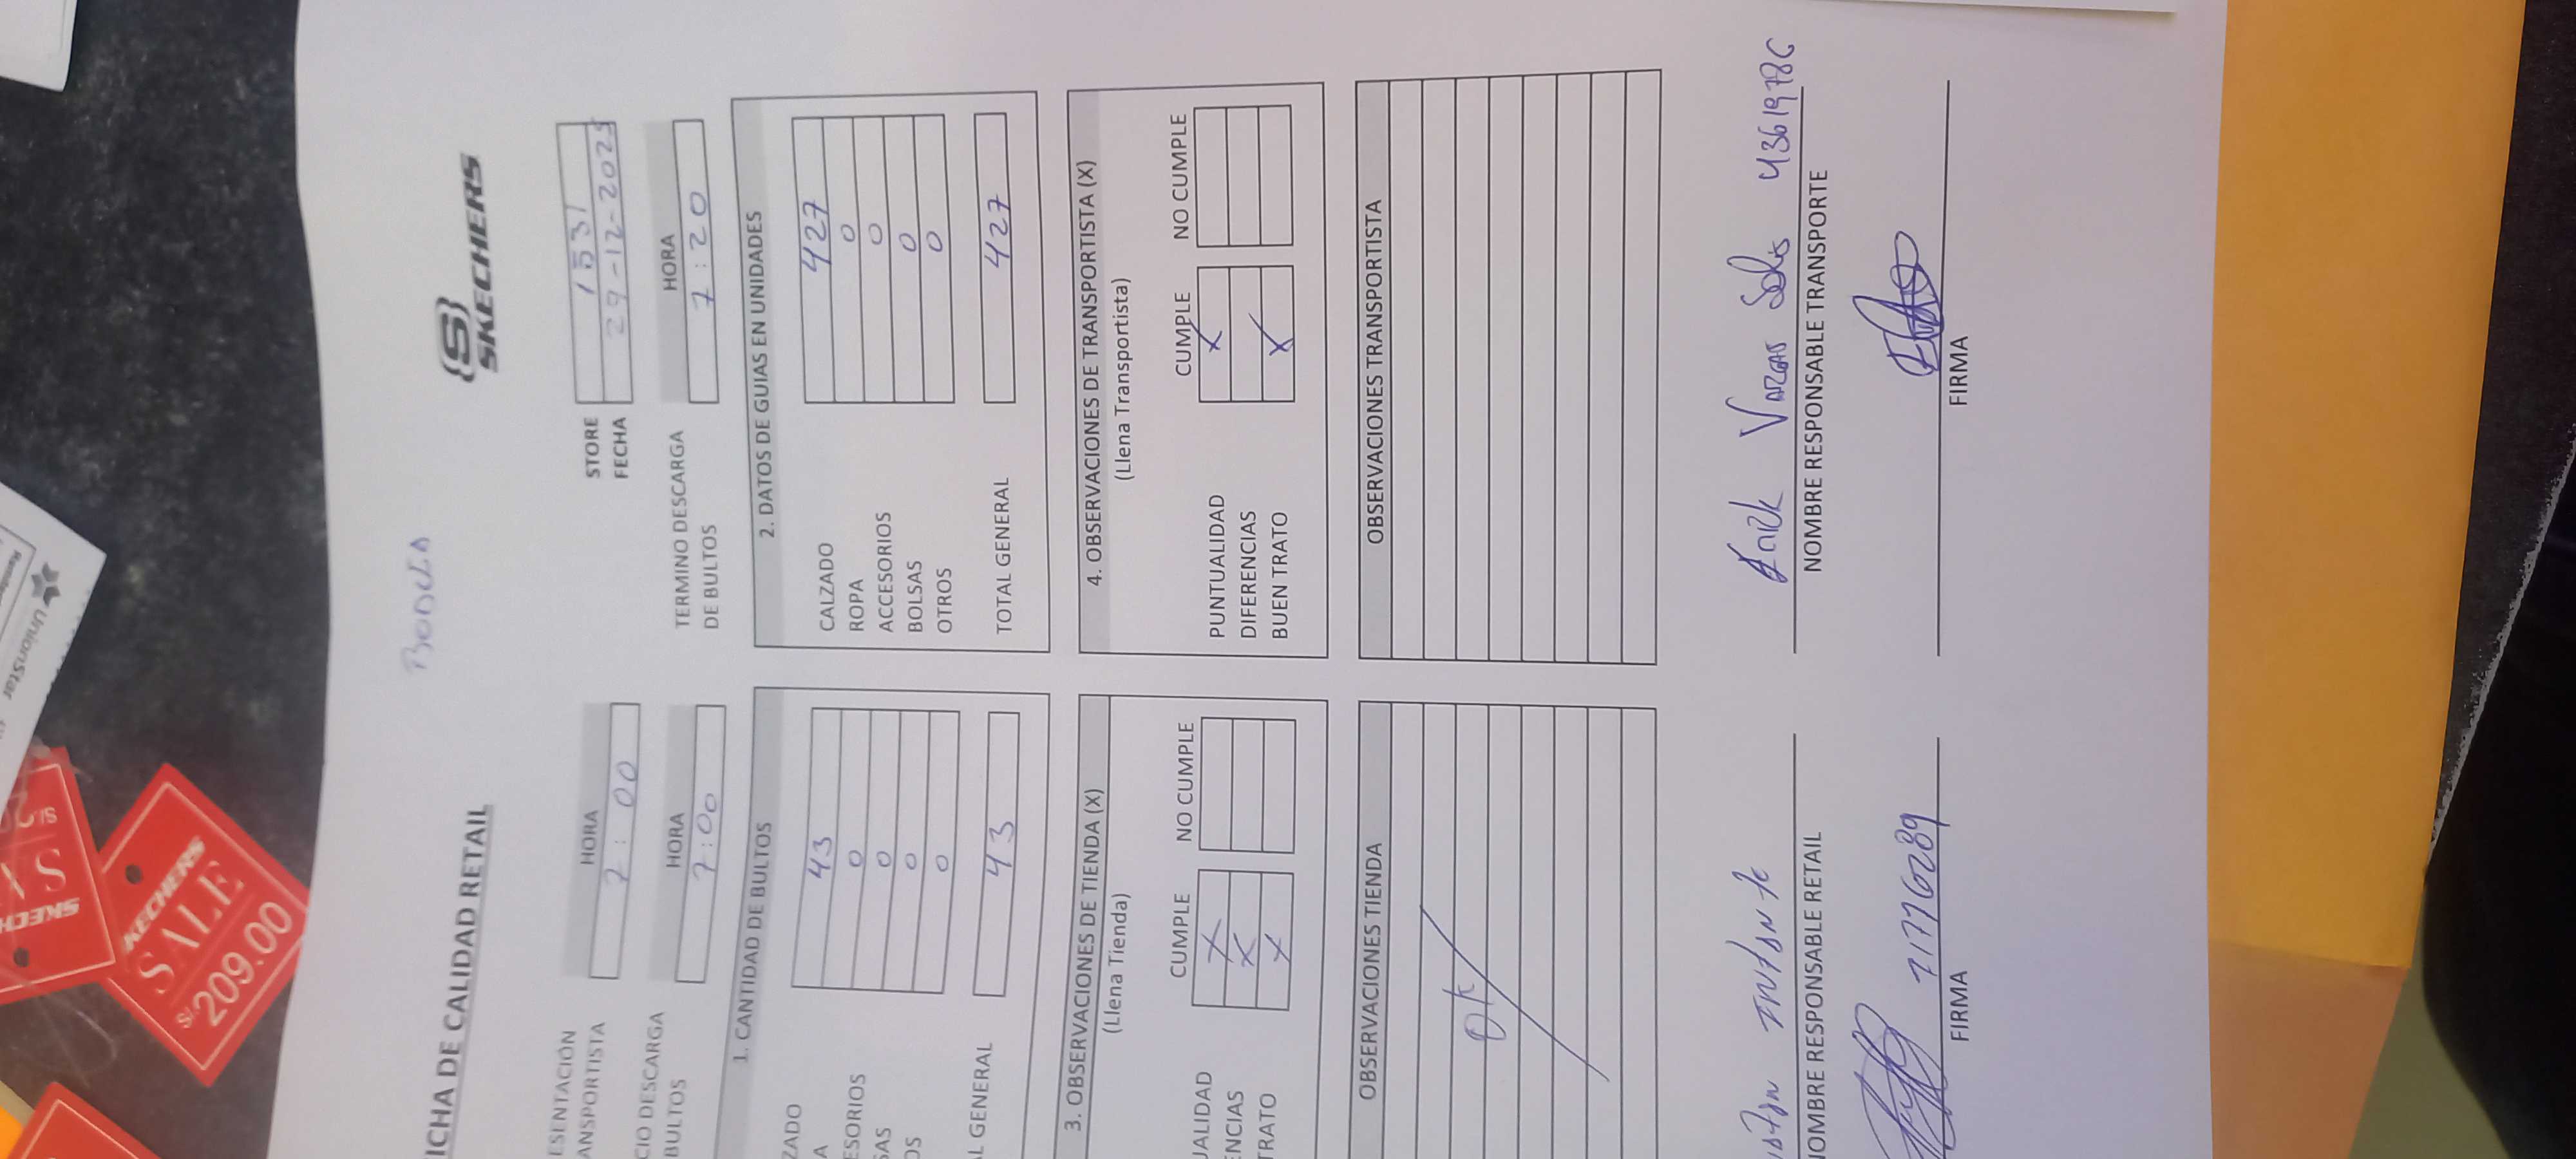 BODEGA
FICHA DE CALIDAD RETAIL
SKECHERS
STORE
FECHA 29-12-2025
ESENTACIÓN
ANSPORTISTA
HORA
7:00
CIO DESCARGA
BULTOS
HORA
7:00
TERMINO DESCARGA
DE BULTOS
HORA
7:20
1. CANTIDAD DE BULTOS
ZADO 43
A 0
ESORIOS 0
SAS 0
OS 0
AL GENERAL 43
2. DATOS DE GUIAS EN UNIDADES
CALZADO 427
ROPA 0
ACCESORIOS 0
BOLSAS 0
OTROS 0
TOTAL GENERAL 427
3. OBSERVACIONES DE TIENDA (X)
(Llena Tienda)
CUMPLE NO CUMPLE
UALIDAD X
ENCIAS X
TRATO X
4. OBSERVACIONES DE TRANSPORTISTA (X)
(Llena Transportista)
CUMPLE NO CUMPLE
PUNTUALIDAD X
DIFERENCIAS
BUEN TRATO X
OBSERVACIONES TIENDA
OK
OBSERVACIONES TRANSPORTISTA
Infante
NOMBRE RESPONSABLE RETAIL
71776289
FIRMA
Erick Vargas Solis 43619786
NOMBRE RESPONSABLE TRANSPORTE
FIRMA
UnionStar
SKECHERS
SALE
S/209.00